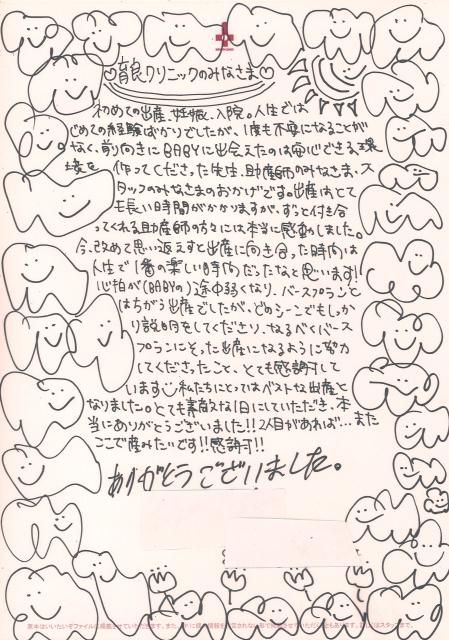 ♡育良クリニックのみなさま♡
初めての出産、妊娠、入院。人生では
じめての経験ばかりでしたが、1度も不安になることが
なく、前り向きにBABYに出会えたのは安心できる環
境を作ってくださった先生、助産師のみなさま、ス
タッフのみなさまのおかげです。出産はとて
も長い時間がかかりますが、ずっと付き合
ってくれる助産師の方々には本当に感動しました。
今、改めて思い返えすと出産に向き合った時間は
人生で1番の楽しい時間だったなと思います!
心拍が(BABYの)途中弱くなり、バースプランと
はちがう出産でしたが、どのシーンでもしっか
り説明をしてくださり、なるべくバース
プランにそった出産になるように努力
してくださったこと、とても感謝して
います 私たちにとってはベストな出産と
なりました。とても素敵な1日にしていただき、本
当にありがとうございました!!2人目があれば…また
ここで産みたいです!!感謝!!
ありがとうございました。
原本はいたいだファイルに掲載させていただきます。また、